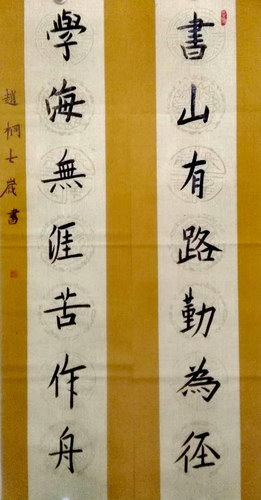 書山有路勤為徑
學海無涯苦作舟
趙桐七歲書